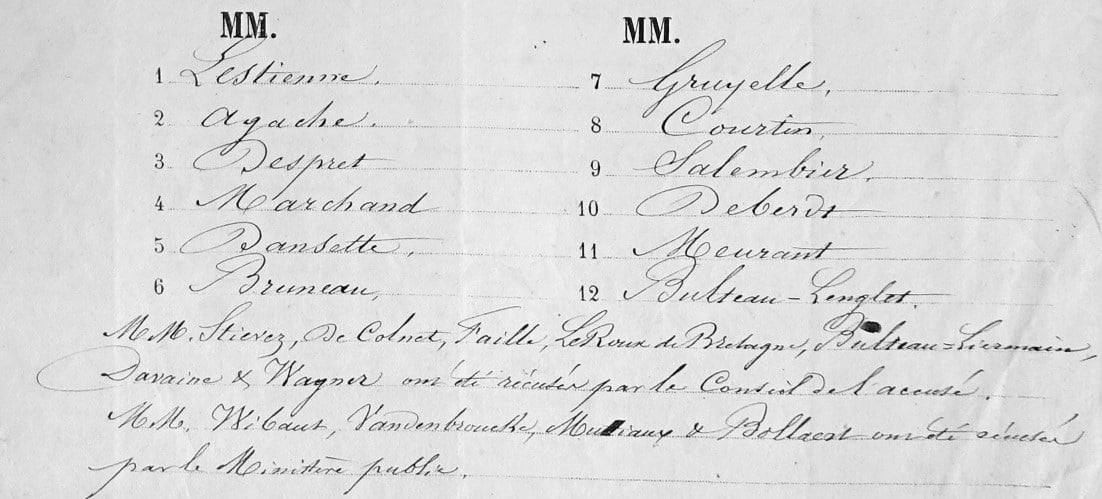 MM. MM.
1 Lestienne. 7 Gruyelle.
2 Agache. 8 Courtin.
3 Despret 9 Salembier.
4 Marchand 10 Deberdt
5 Dansette. 11 Meurant
6 Bruneau, 12 Bulteau-Lenglet.
MM. Stievez, De Colnet, Faille, Le Roux de Bretagne, Bulteau=Liermain,
Davaine & Wagner ont été récusés par le Conseil de l'accusé.
MM. Wibaut, Vandenbroucke, & Bollaert ont été récusés
par le Ministère public.